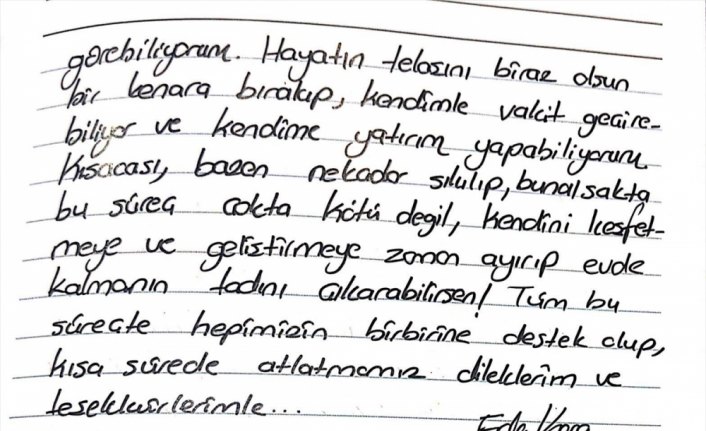 görebiliyorum. Hayatın telasını biraz olsun
bir kenara bırakıp, kendimle vakit geçire-
biliyor ve kendime yatırım yapabiliyorum.
Kısacası, bazen nekadar sıkılıp, bunalsakta
bu süreç çokta kötü degil, kendini kesfet-
meye ve gelistirmeye zaman ayırıp evde
kalmanın tadını çıkarabilirsen! Tüm bu
süreçte hepimizin birbirine destek olup,
kısa sürede atlatmamız dileklerim ve
tesekkürlerimle...